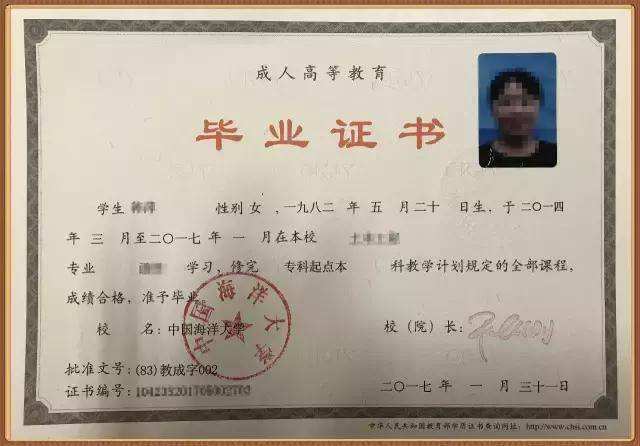 成人高等教育
毕业证书
学生 性别 女 ,一九八二 年 五 月 二十 日生,于 二〇一四
年 三 月至二〇一七年 一 月在本校
专业 学习,修完 专科起点本 科教学计划规定的全部课程,
成绩合格,准予毕业
校 名:中国海洋大学
校(院)长:
中国海洋大学
批准文号:(83)教成字002
证书编号:
二〇一七年 一 月 三十一日
中华人民共和国教育部学历证书查询网址:http://www.chsi.com.cn